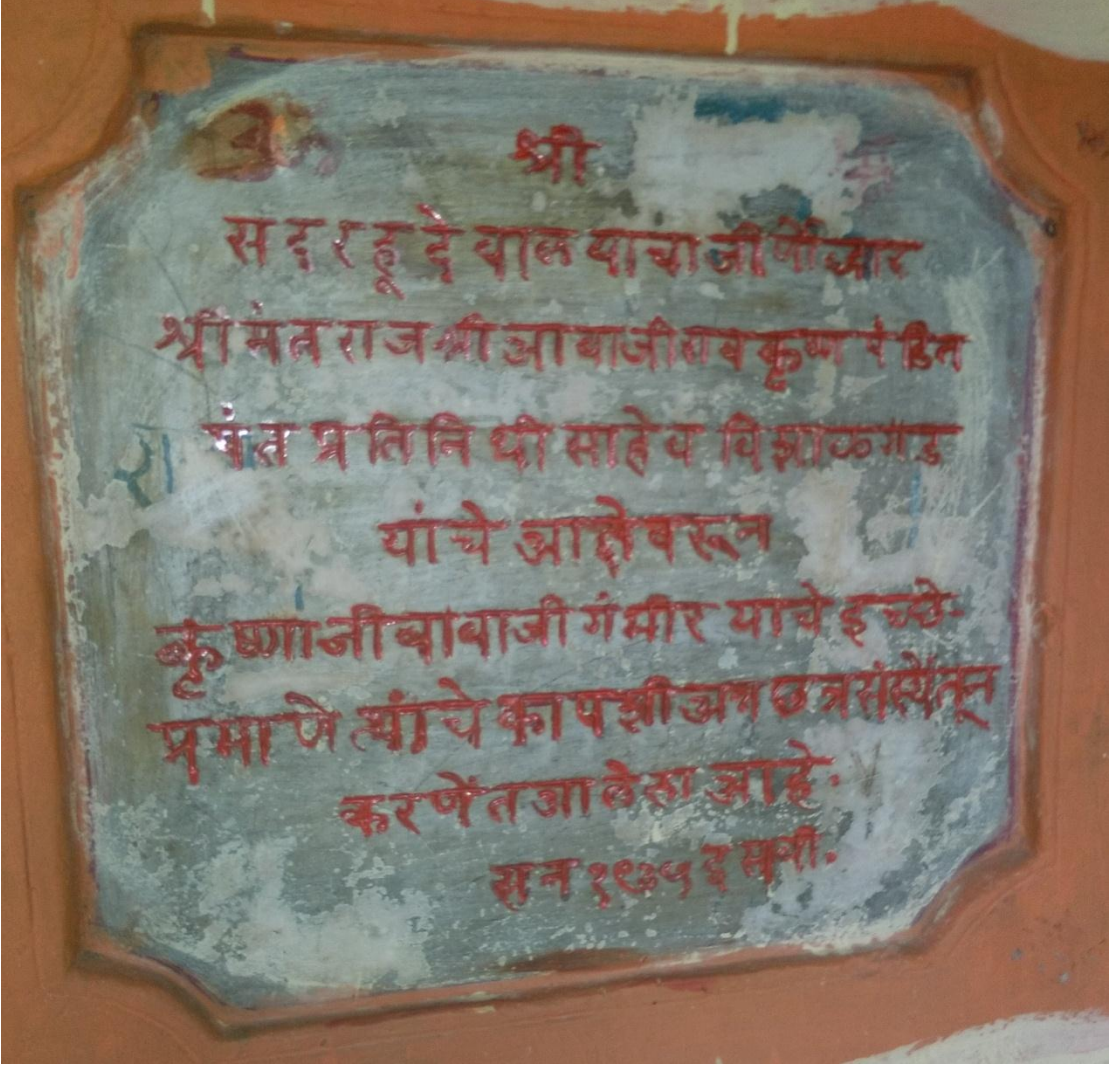 श्री
सदरहू देवालयाचा जीर्णोद्धार
श्रीमंत राजश्री आबाजीराव कृष्ण पंडित
पंत प्रतिनिधी साहेब विशाळगड
यांचे आज्ञेवरून
कृष्णाजी बाबाजी गंभीर यांचे इच्छे-
प्रमाणे त्यांचे कापशी अन्नछत्र संस्थेतून
करणेंत आलेला आहे.
सन १९३५ इसवी.